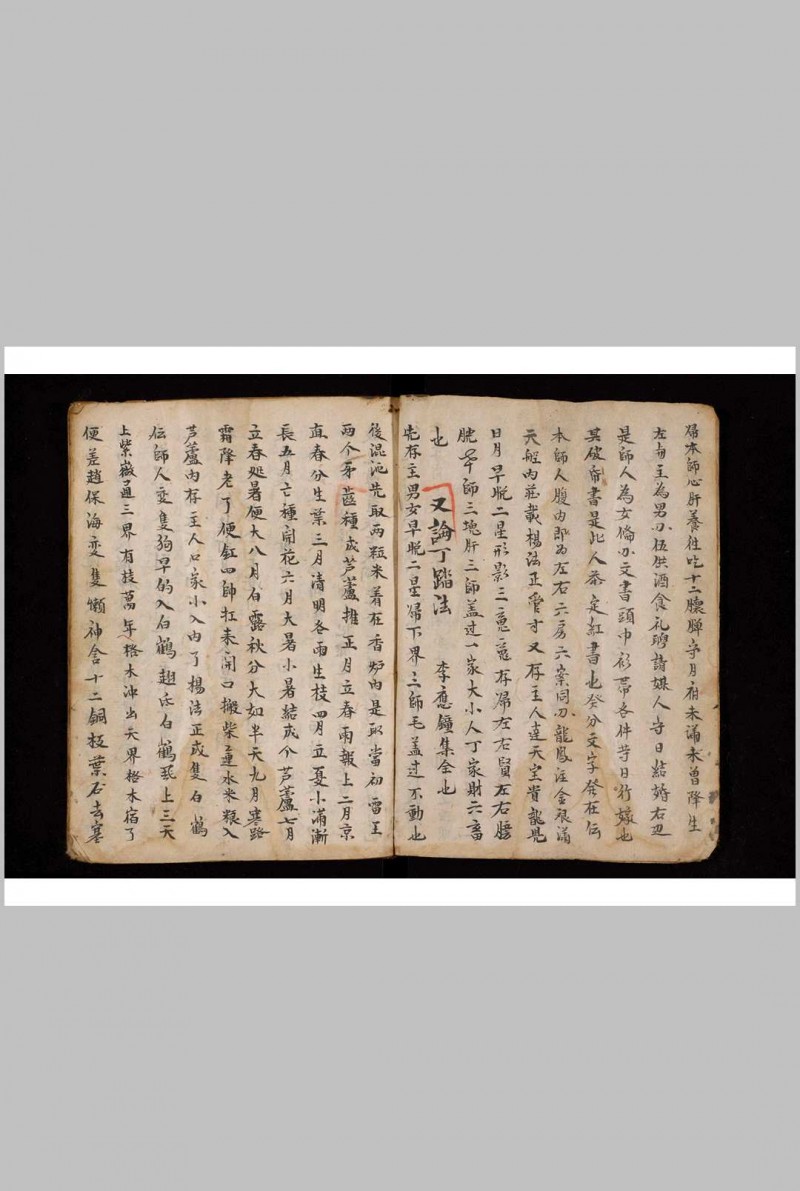 歸本師心肝養牲吃十二臟脾守月府未滿未曽降生
左邊主為男另伍供酒食礼請媒人守日結婚右边
是師人為女偹办文書頭巾衫帶各件䒭日行嫁也
其破帝書是此人恭定紅書也癸分文字癸在伝
本師人腹内即為左右六房六案同办龍鳳注金艮滿
天船内莊載楊法正管才又存主人達天堂背龍凳
日月早晚二星形影三䰟存歸左右賢左右腰
腕 師三塊肝三師盖过一家大小人丁家財六畜
也
又論丁踏法 李應鐘集全也
先存主男女早晚二星歸下界三師毛盖过不動也
後混沌先取两粒米着在香炉内是取當初雷王
两个牙 種成芦蘆推正月立春雨報上二月京
直春分生葉三月清明各雨生枝四月立夏小滿漸
長五月亡種開花六月大暑小暑結成个芦蘆七月
立春処暑便大八月白露秋分大如半天九月寒路
霜降老了便缸四帥扛来開口搬柴運水米粮入
芦蘆内存主人口家小入内了楊法正成隻白鶴
伝師人变隻狗早的入白鶴 白鶴 上三天
上紫薇通三界有枝萬年格木冲出天界格木宿了
便差趙保海变隻懶神舍十二銅板葉石去塞